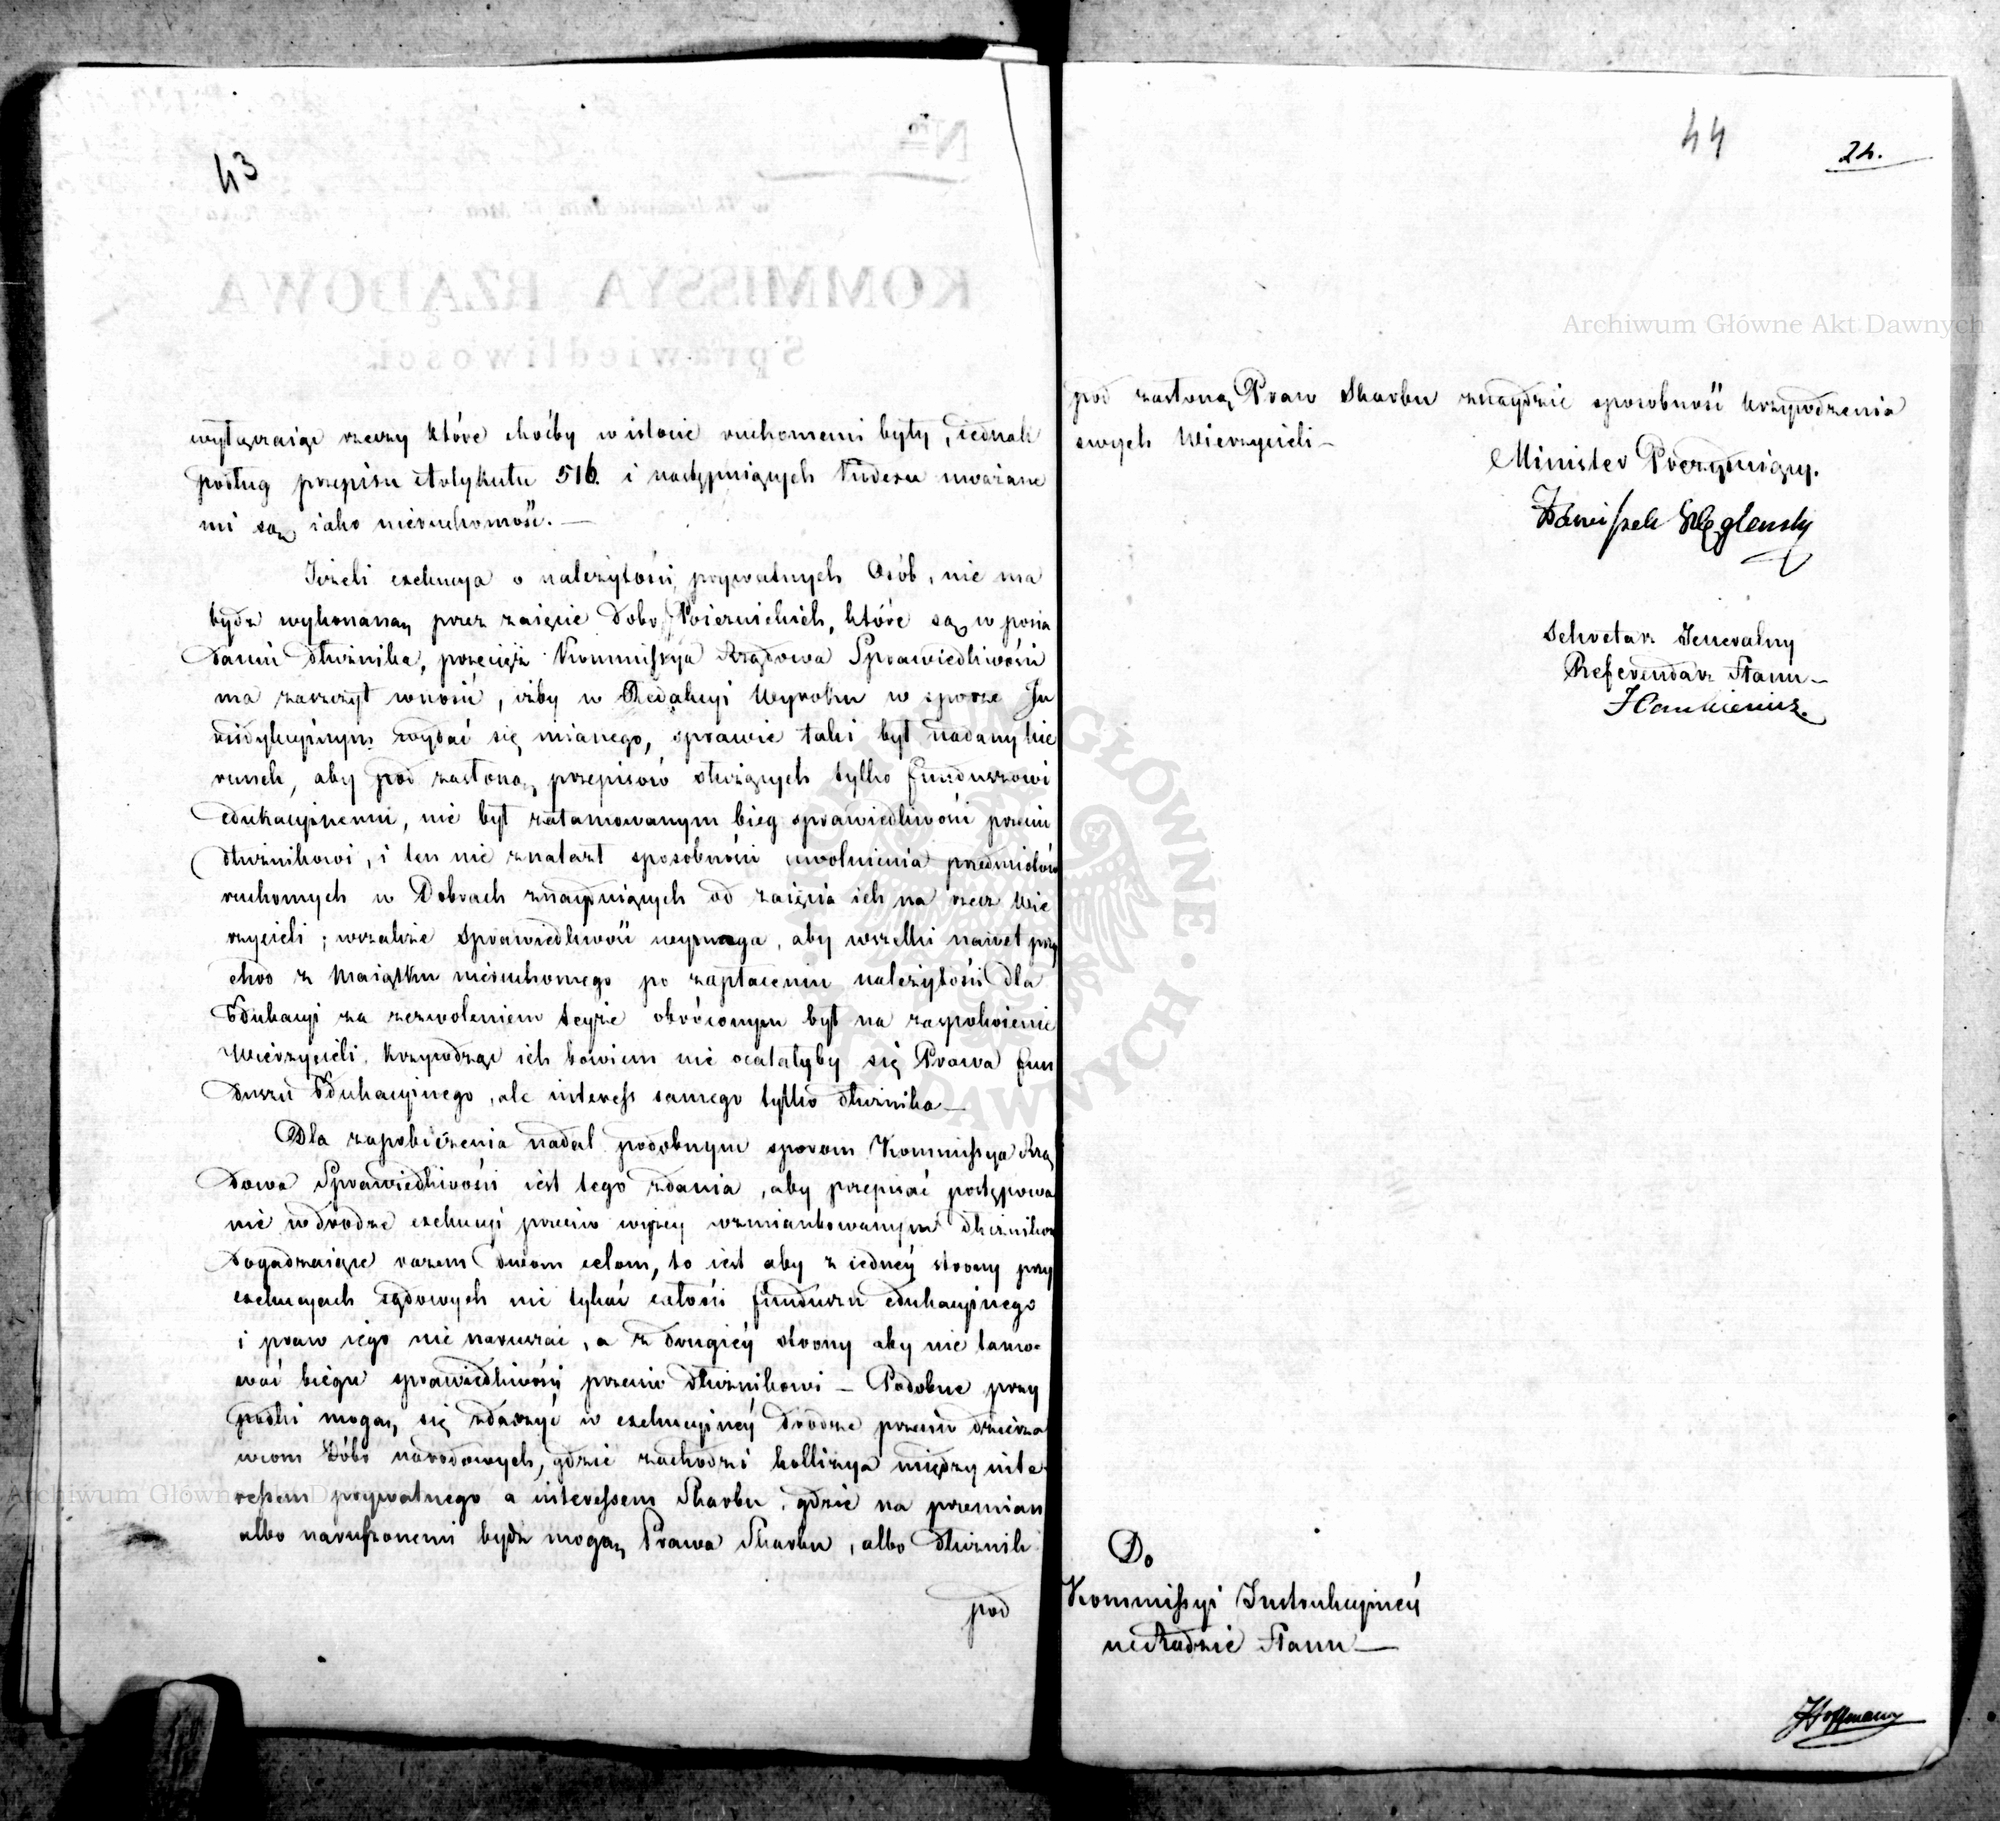 43
wyłączaiąc rzeczy które choćby w istocie ruchomemi były, iednak
podług przepisu Artykułu 516. i następuiących Kodexu uważane
mi są iako nieruchomość. —
Jeżeli exekucya o należytości prywatnych Osób, nie ma
bydź wykonaną przez zaięcie Dobr Poiezuickich, które są w posia
daniu dłużnika, przecięż Kommissya Rządowa Sprawiedliwości
ma zaszczyt wnosić, iżby w Redakcyi Wyroku w sporze Ju
risdykcyinym wydać się mianego, sprawie taki był nadany kie
runek, aby pod zasłoną przepisów służących tylko funduszowi
edukacyinemu, nie był zatamowanym bieg sprawiedliwości przeciw
dłużnikowi, i ten nie znalazł sposobności uwolnienia przedmiotów
ruchomych w Dobrach znayduiących od zaięcia ich na rzecz Wie
rzycieli; wszakże sprawiedliwość wymaga, aby wszelki nawet przy
chod z Maiątku nieruchomego po zapłaceniu należytości dla
Edukacyi za zezwoleniem teyże obróconym był na zaspokoienie
Wierzycieli. Krzywdząc ich bowiem nie ocalałyby się Prawa fun
duszu Edukacyinego, ale interess samego tylko dłużnika —
Dla zapobieżenia nadal podobnym sporom Kommissya Rzą
dowa Sprawiedliwości iest tego zdania, aby przepisać postępowa
nie w drodze exekucyi przeciw wyżey wzmiankowanym dłużnikom
dogadzaiące razem dwom celom, to iest aby z iedney strony przy
exekucyach sądowych nie tykać całości funduszu edukacyinego
i praw iego nie naruszać, a z drugiey strony aby nie tamo-
wać biegu sprawiedliwości przeciw dłużnikowi — Podobne przy
padki mogą się zdarzyć w exekucyiney drodze przeciw dzierża
wcom Dóbr narodowych, gdzie zachodzi kollizya między inte
ressem prywatnego a interessem Skarbu, gdzie na przemian
albo naruszonemi bydź mogą Prawa Skarbu, albo dłużnik
pod
44
24.
pod zasłoną Praw Skarbu znaydzie sposobność krzywdzenia
swych Wierzycieli —
Minister Prezyduiący.
Franciszek Węglenski
Sekretarz Jeneralny
Referendarz Stanu —
J Hankiewicz.
Do
Kommissyi Instrukcyiney
w Radzie Stanu —
Hoffmann
Nro
KOMMISSYA RZĄDOWA
Sprawiedliwości.
Archiwum Główne Akt Dawnych
Archiwum Główne Akt Dawnych
ARCHIWUM GŁÓWNE · AKT DAWNYCH ·